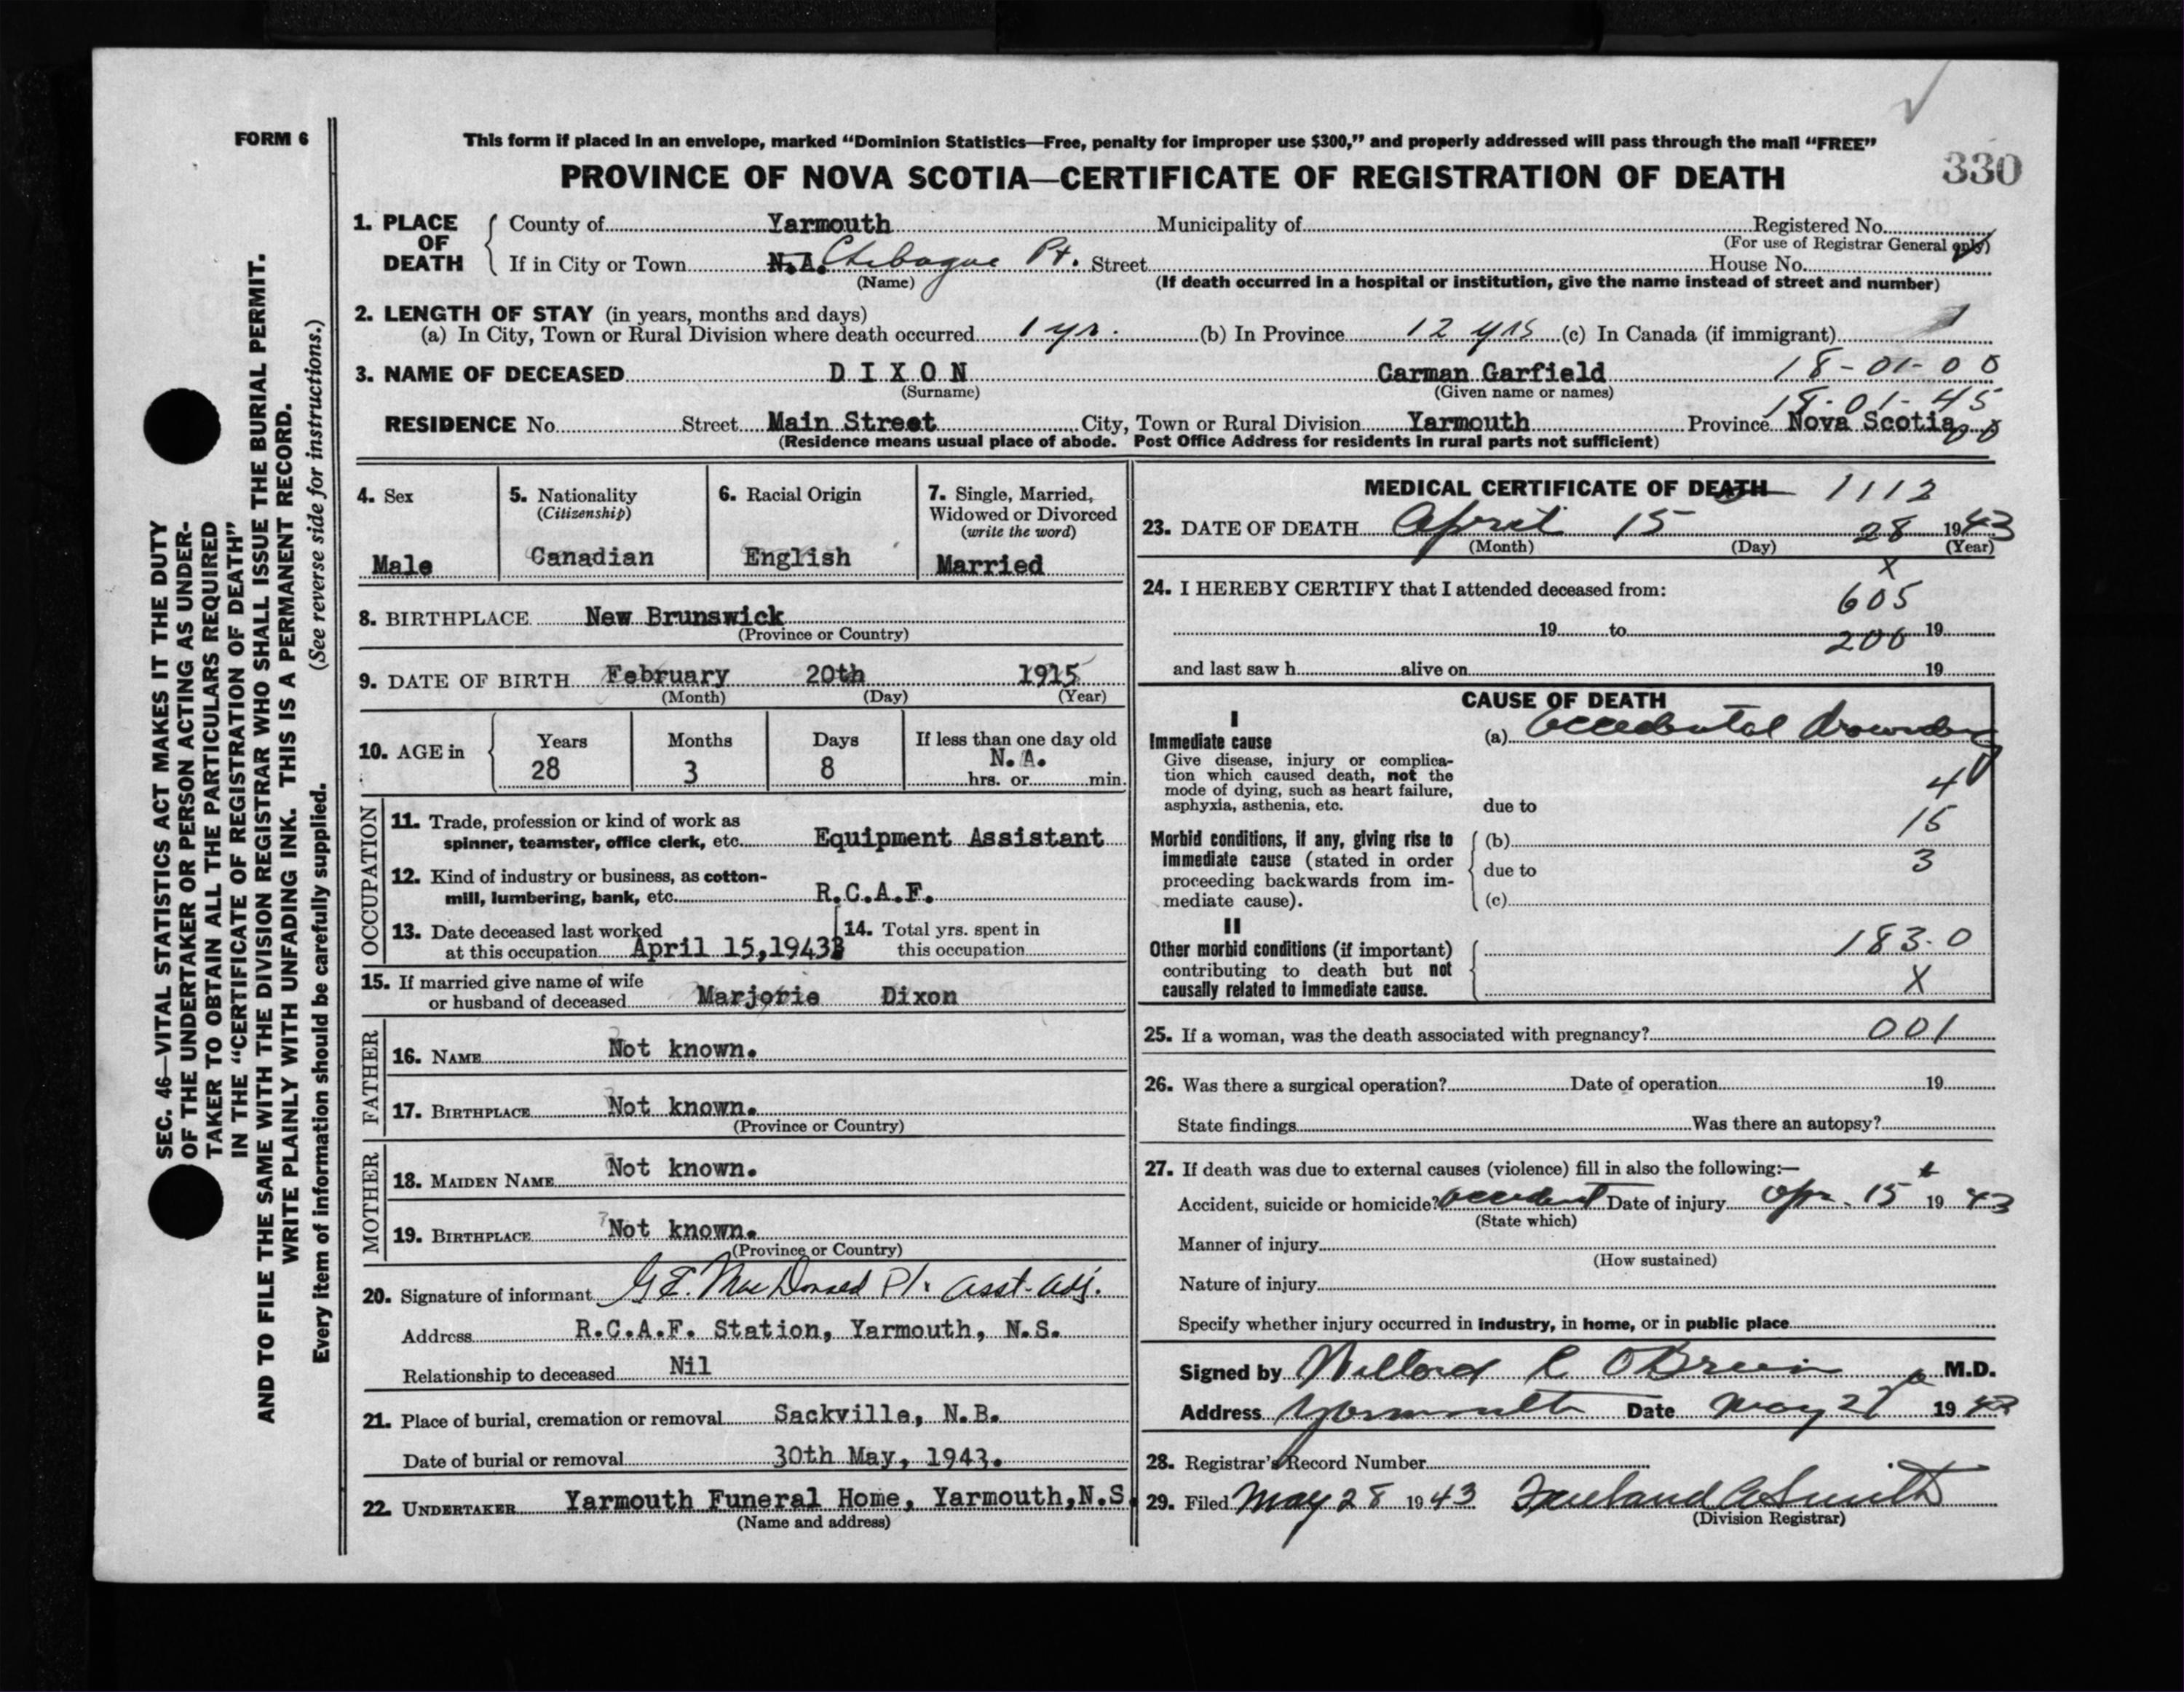 FORM 6
This form if placed in an envelope, marked “Dominion Statistics—Free, penalty for improper use $300,” and properly addressed will pass through the mail “FREE”
PROVINCE OF NOVA SCOTIA—CERTIFICATE OF REGISTRATION OF DEATH
330
1. PLACE OF DEATH
County of Yarmouth Municipality of Registered No.
(For use of Registrar General only)
If in City or Town N.A. Chebogue Pt. Street House No.
(Name) (If death occurred in a hospital or institution, give the name instead of street and number)
2. LENGTH OF STAY (in years, months and days)
(a) In City, Town or Rural Division where death occurred 1 yr. (b) In Province 12 yrs (c) In Canada (if immigrant)
3. NAME OF DECEASED DIXON Carman Garfield 18-01-00
(Surname) (Given name or names)
18-01-45
RESIDENCE No. Street Main Street City, Town or Rural Division Yarmouth Province Nova Scotia
(Residence means usual place of abode. Post Office Address for residents in rural parts not sufficient)
4. Sex
Male
5. Nationality
(Citizenship)
Canadian
6. Racial Origin
English
7. Single, Married,
Widowed or Divorced
(write the word)
Married
8. BIRTHPLACE New Brunswick
(Province or Country)
9. DATE OF BIRTH February 20th 1915
(Month) (Day) (Year)
10. AGE in
Years Months Days If less than one day old
28 3 8 N.A.
hrs. or min.
OCCUPATION
11. Trade, profession or kind of work as
spinner, teamster, office clerk, etc. Equipment Assistant
12. Kind of industry or business, as cotton-
mill, lumbering, bank, etc. R.C.A.F.
13. Date deceased last worked
at this occupation April 15,1943
14. Total yrs. spent in
this occupation
15. If married give name of wife
or husband of deceased Marjorie Dixon
FATHER
16. NAME Not known.
17. BIRTHPLACE Not known.
(Province or Country)
MOTHER
18. MAIDEN NAME Not known.
19. BIRTHPLACE Not known.
(Province or Country)
20. Signature of informant G E. MacDonald P/ Asst. Adj.
Address R.C.A.F. Station, Yarmouth, N.S.
Relationship to deceased Nil
21. Place of burial, cremation or removal Sackville, N.B.
Date of burial or removal 30th May, 1943.
22. UNDERTAKER Yarmouth Funeral Home, Yarmouth,N.S.
(Name and address)
MEDICAL CERTIFICATE OF DEATH 1112
23. DATE OF DEATH April 15 28 1943
(Month) (Day) (Year)
x
24. I HEREBY CERTIFY that I attended deceased from:
605
19 to 19
206
and last saw h alive on 19
CAUSE OF DEATH
I
Immediate cause
Give disease, injury or complica-
tion which caused death, not the
mode of dying, such as heart failure,
asphyxia, asthenia, etc.
(a) Accidental drowning
4
due to
15
Morbid conditions, if any, giving rise to
immediate cause (stated in order
proceeding backwards from im-
mediate cause).
(b)
due to 3
(c)
II
Other morbid conditions (if important)
contributing to death but not
causally related to immediate cause.
183.0
X
25. If a woman, was the death associated with pregnancy? 001
26. Was there a surgical operation? Date of operation 19
State findings Was there an autopsy?
27. If death was due to external causes (violence) fill in also the following:—
Accident, suicide or homicide? accident Date of injury Apr. 15 1943
(State which)
Manner of injury
(How sustained)
Nature of injury
Specify whether injury occurred in industry, in home, or in public place
Signed by Willard R O'Brien M.D.
Address Yarmouth Date May 27 1943
28. Registrar's Record Number
29. Filed May 28 1943 A Smith
(Division Registrar)
SEC. 46—VITAL STATISTICS ACT MAKES IT THE DUTY
OF THE UNDERTAKER OR PERSON ACTING AS UNDER-
TAKER TO OBTAIN ALL THE PARTICULARS REQUIRED
IN THE “CERTIFICATE OF REGISTRATION OF DEATH”
AND TO FILE THE SAME WITH THE DIVISION REGISTRAR WHO SHALL ISSUE THE BURIAL PERMIT.
WRITE PLAINLY WITH UNFADING INK. THIS IS A PERMANENT RECORD.
Every item of information should be carefully supplied. (See reverse side for instructions.)